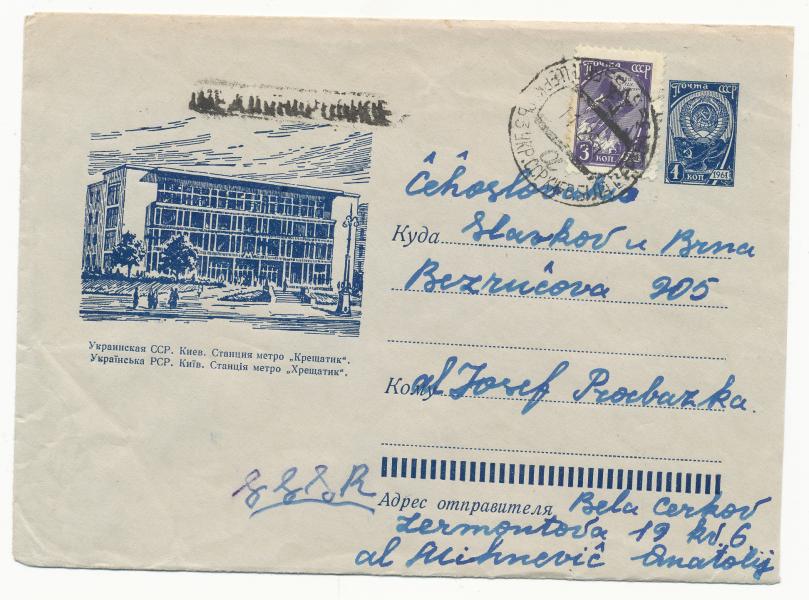 Почта СССР
3 коп
Почта СССР
4 коп 1961
Ĉeĥoslovakio
Куда Slavkov u Brna
Bezručova 905
Кому al Josef Procházka.
Украинская ССР. Киев. Станция метро „Крещатик“.
Українська РСР. Київ. Станція метро „Хрещатик“.
SSSR
Адрес отправителя Bela Cerkov
Lermontova 19 kv. 6
al Miĥneviĉ Anatolij